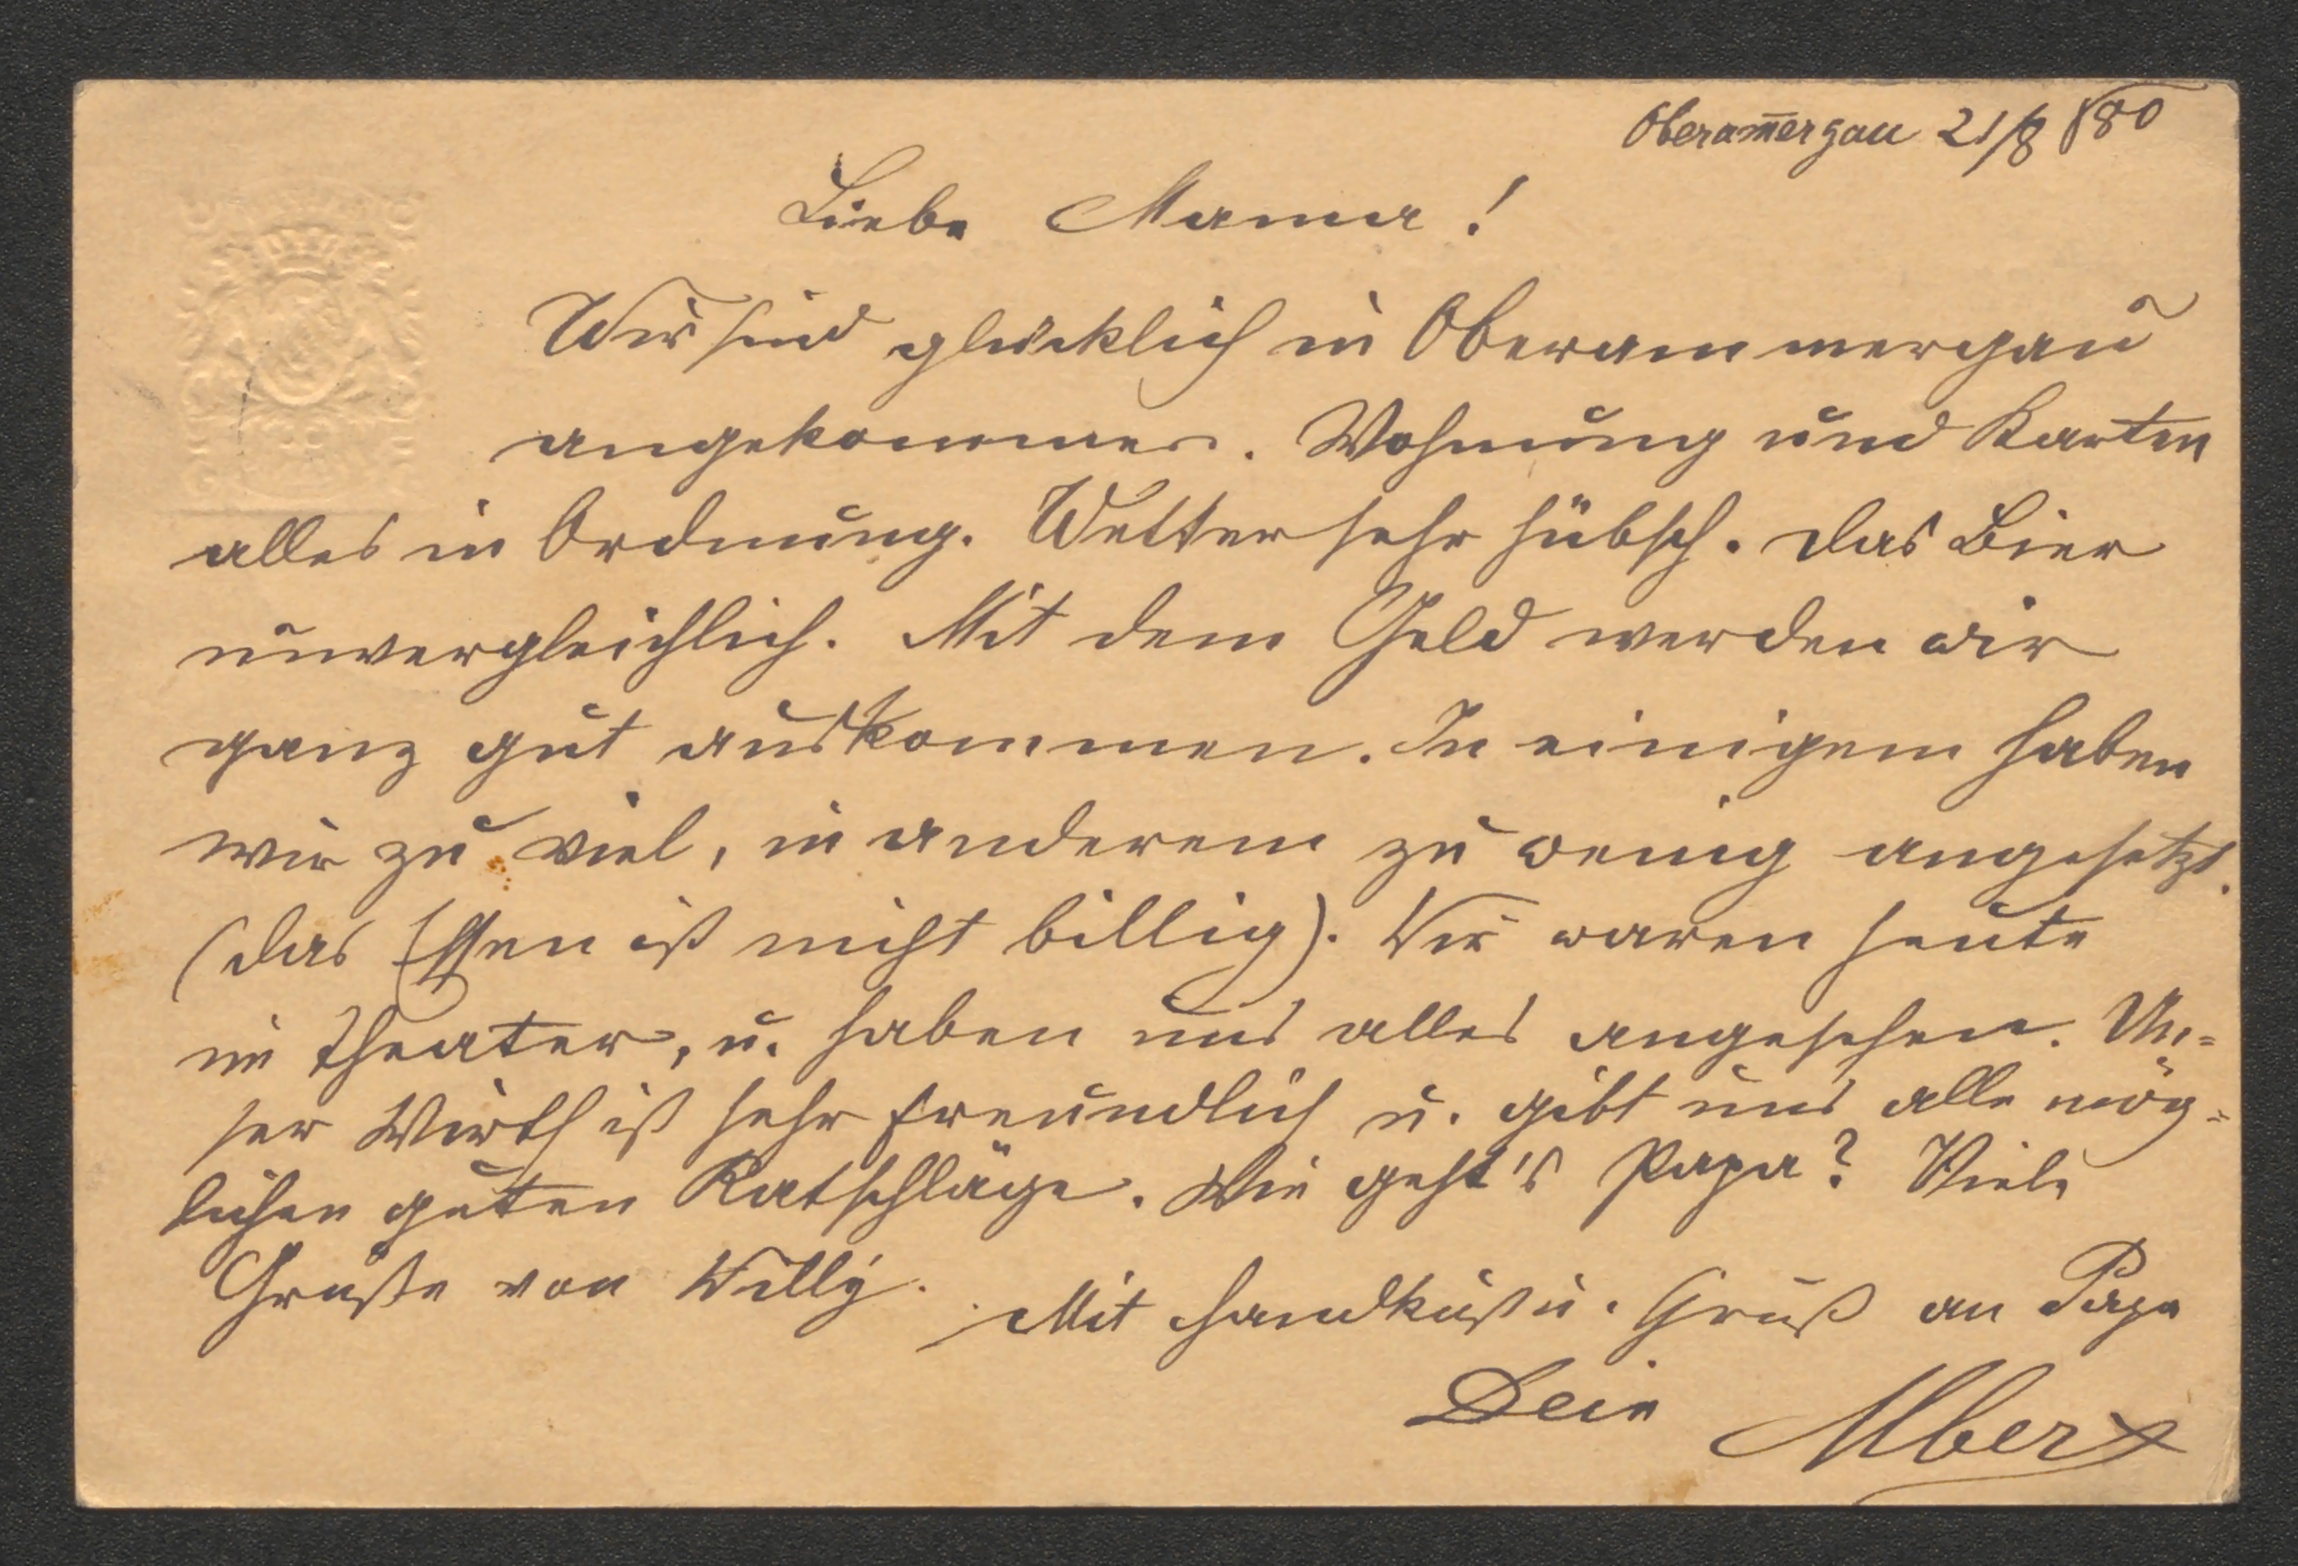 Oberam̄ergau 21/8 880
Liebe Mama!
Wir sind glücklich in Oberammergau
angekommen. Wohnung und Karten
alles in Ordnung. Wetter sehr hübsch. Das Bier
unvergleichlich. Mit dem Geld werden wir
ganz gut auskommen. In einigem haben
wir zu viel, in anderem zu wenig angesetzt.
(das Essen ist nicht billig). Wir waren heute
im Theater, u. haben uns alles angesehen. Un=
ser Wirth ist sehr freundlich u. gibt uns alle mög=
lichen guten Ratschläge. Wie geht's Papa? Viele
Grüße von Willy. Mit Handkuß u. Gruß an Papa
Dein Albert